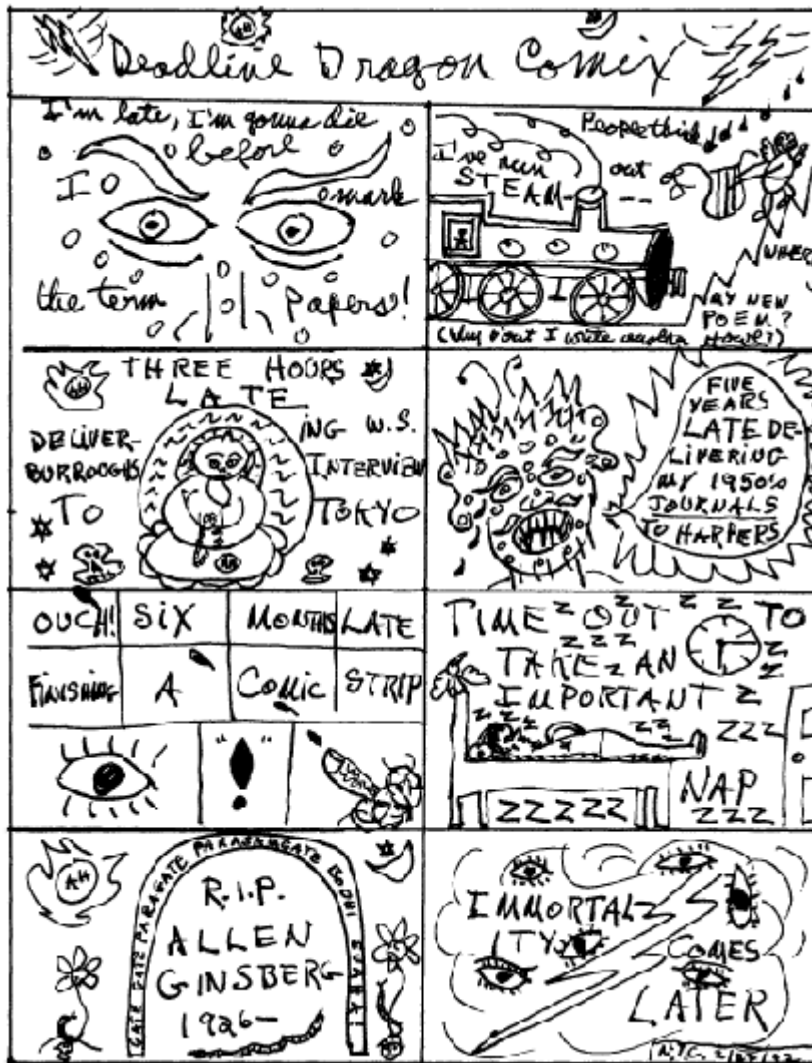 Deadline Dragon Comix
I'm late, I'm gonna die
before
I
mark
the term
papers!
People think
I've run out
STEAM
WHERE
MY NEW
POEM?
(Why don't I write another Howl?)
THREE HOURS
LATE
DELIVER- ING W.S.
BURROUGHS INTERVIEW
TO TOKYO
FIVE
YEARS
LATE DE-
LIVERING
MY 1950s
JOURNALS
TO HARPERS
OUCH! SIX MONTHS LATE
FINISHING A COMIC STRIP
"!"
TIME OUT TO
TAKE AN
IMPORTANT
NAP
Z Z Z Z Z
AH
GATE GATE PARAGATE PARASAMGATE BODHI SVAHA
R.I.P.
ALLEN
GINSBERG
1926—
IMMORTAL-
ITY
COMES
LATER